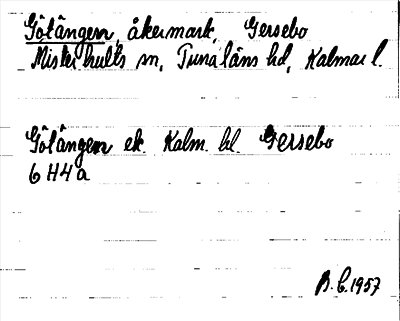 Götängen, åkermark, Gersebo
Misterhults sn, Tunaläns hd, Kalmar l.
Götängen ek. Kalm. bl. Gersebo
6 H4a
B.C. 1957